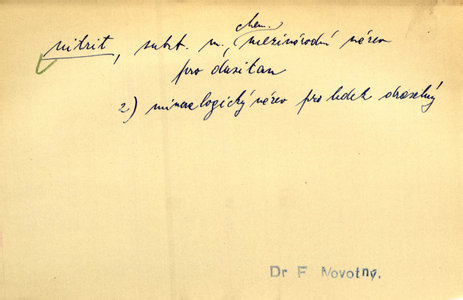 chem.
nitrit, subt. m., mezinárodní název
pro dusitan
2) mineralogický název pro ledek draselný
Dr F Novotny.